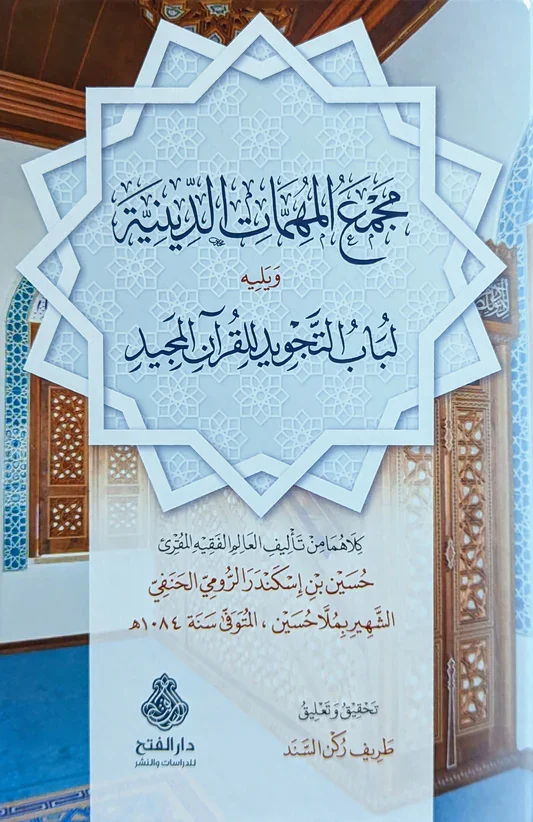 مَجْمَعُ المُهِمَّاتِ الدِّينِيَّة
وَيَلِيه
لُبَابُ التَّجْوِيدِ لِلْقُرآنِ المَجِيدِ
كِلَاهُمَا مِنْ تَأْلِيفِ العَالِمِ الفَقِيهِ المُقْرِئ
حُسَيْن بْنِ إِسْكَنْدَر الرُّومِيّ الحَنَفِيّ
الشَّهِيرِ بِمُلَّا حُسَيْن ، المُتَوَفَّى سَنَة ١٠٨٤هـ
تَحْقِيقُ وَتَعْلِيقُ
طَرِيف رُكْن السَّنَد
دار الفتح
للدراسات والنشر